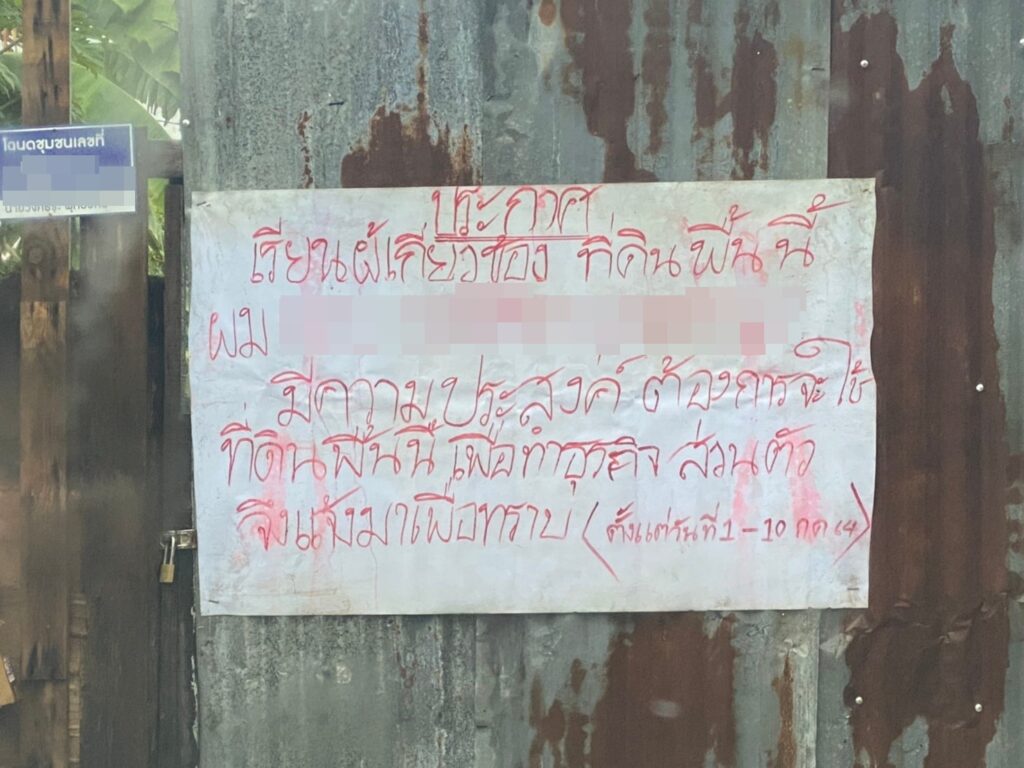 โฉนดชุมชนเลขที่
ประกาศ
เรียนผู้เกี่ยวข้อง ที่ดินพื้นนี้
ผม
มีความประสงค์ ต้องการจะใช้
ที่ดินพื้นนี้ เพื่อทำธุรกิจ ส่วนตัว
จึงแจ้งมาเพื่อทราบ (ตั้งแต่วันที่ 1 - 10 กค 64)